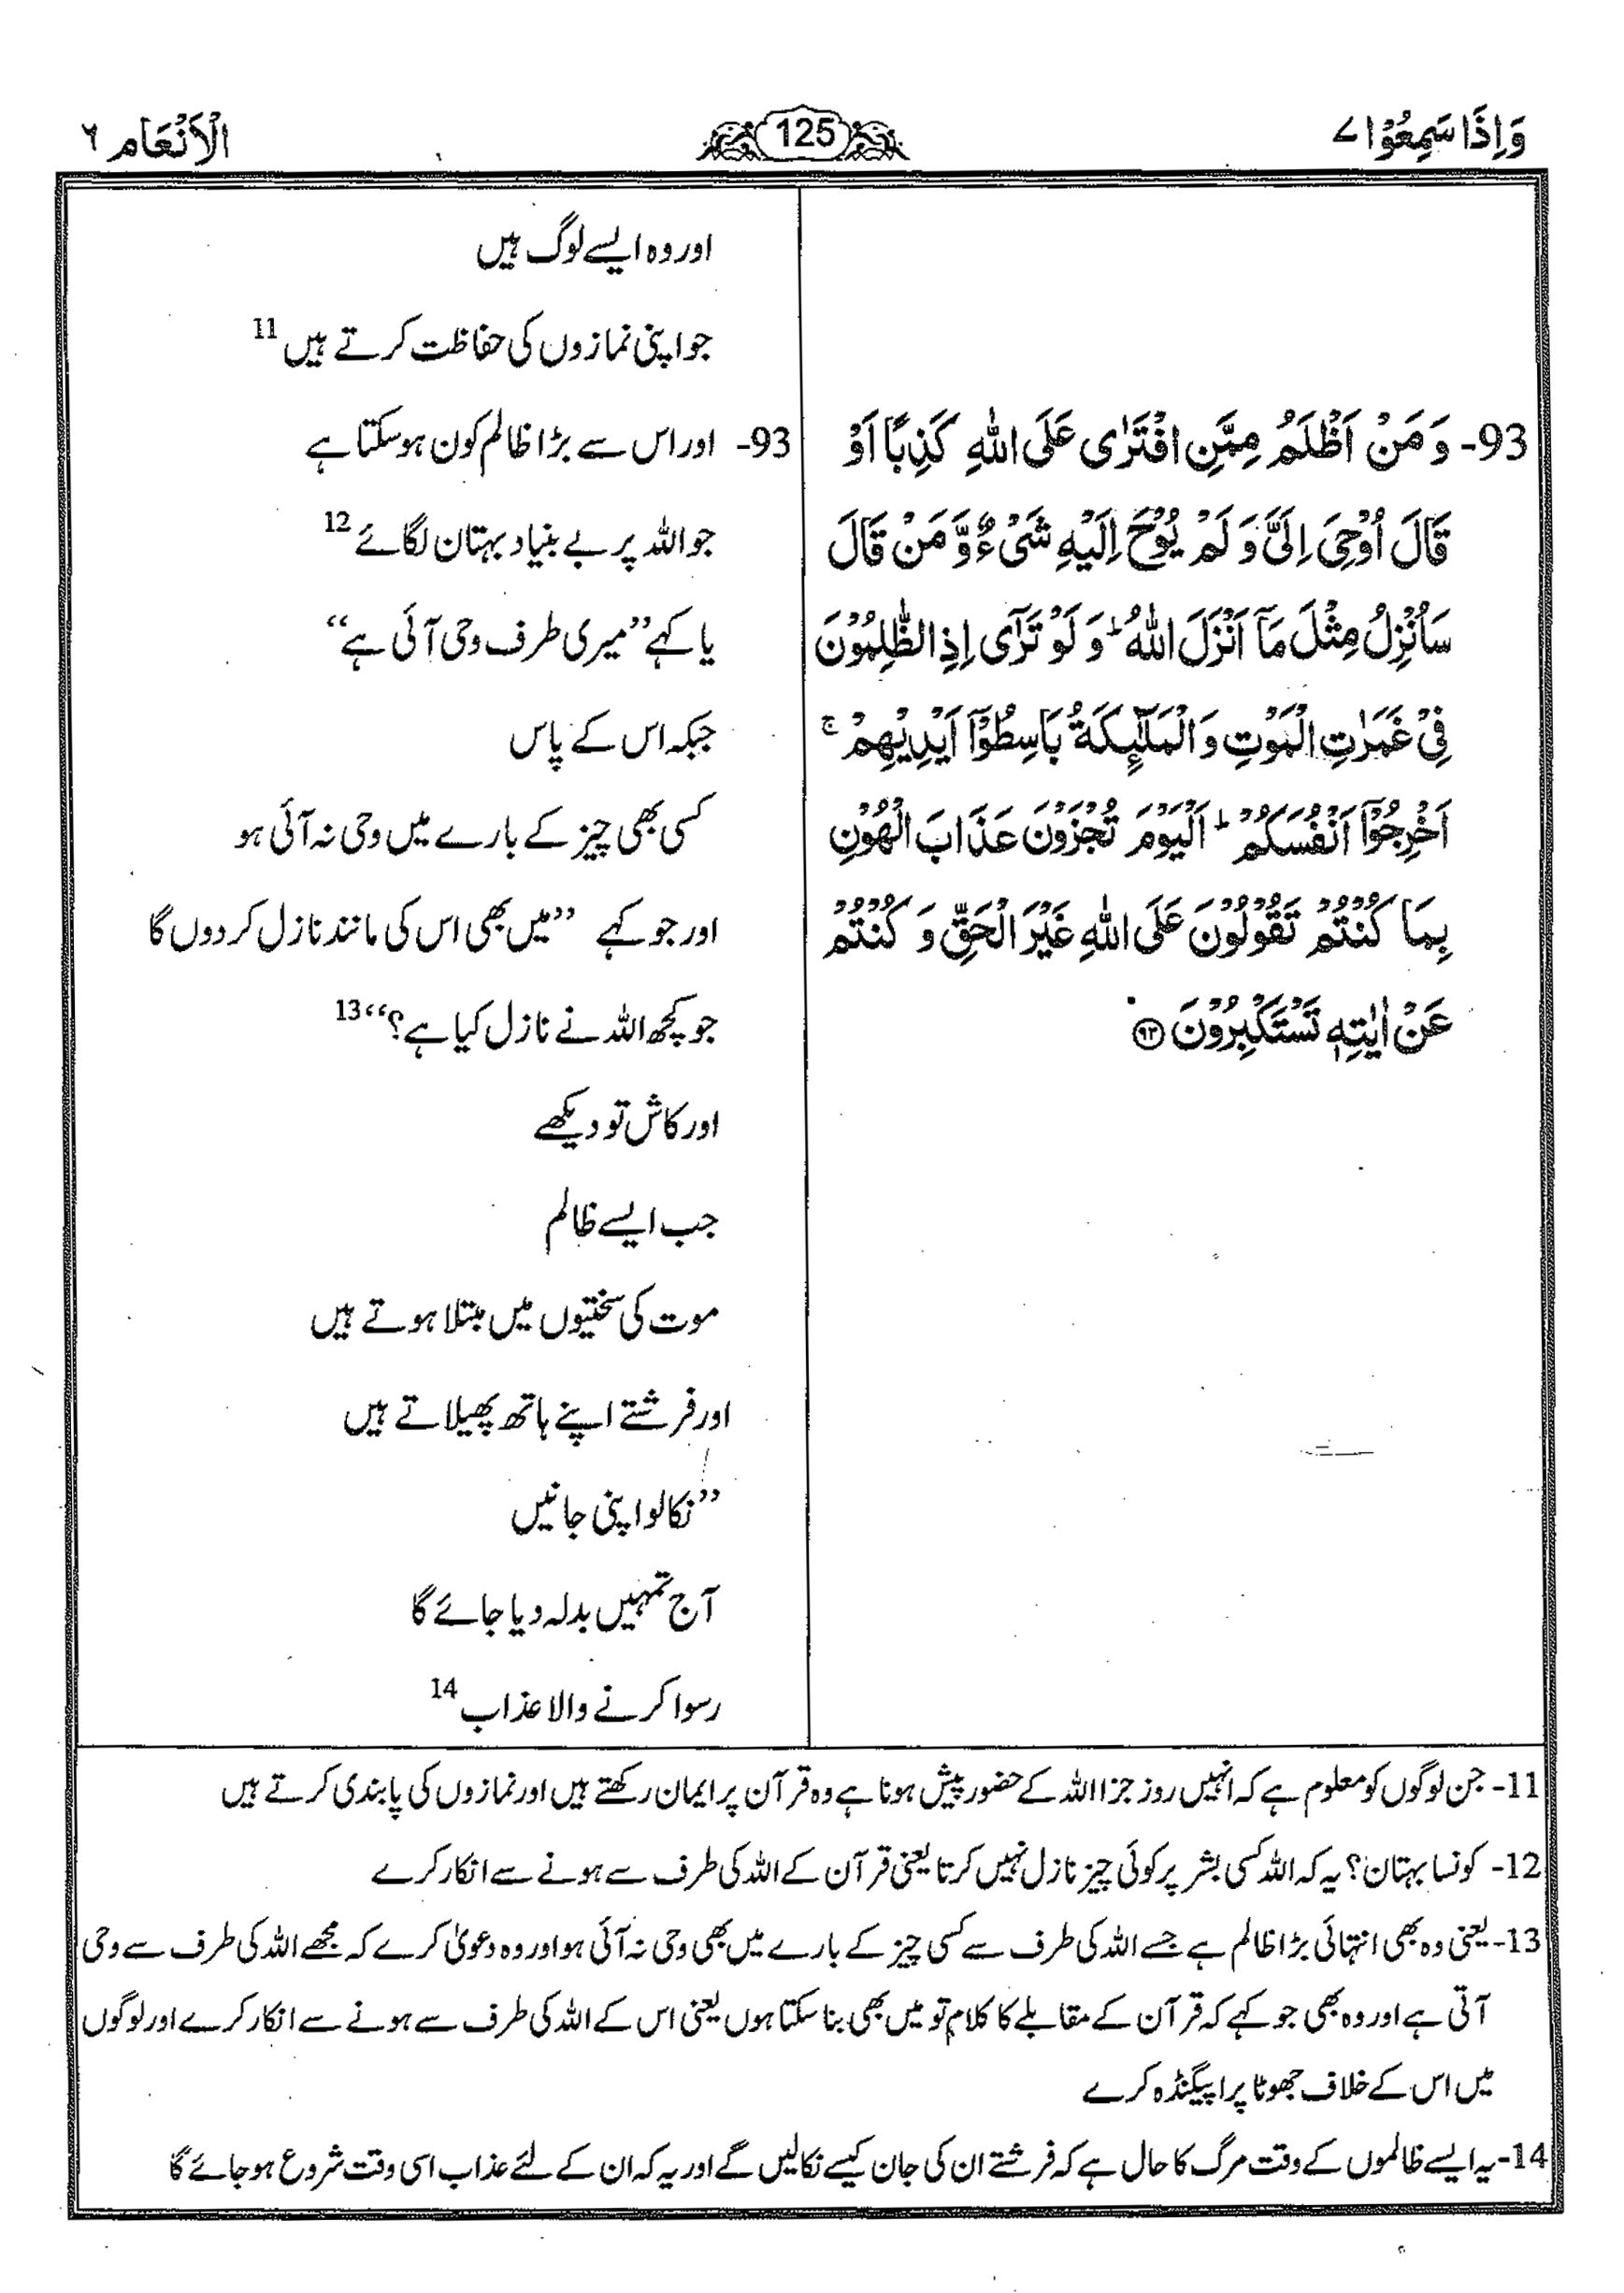 وَاِذَا سَمِعُوْا ۷
125
الْاَنْعَام ٦
93- وَ مَنْ اَظْلَمُ مِمَّنِ افْتَرٰى عَلَى اللّٰهِ كَذِبًا اَوْ
قَالَ اُوْحِیَ اِلَیَّ وَ لَمْ یُوْحَ اِلَیْهِ شَیْءٌ وَّ مَنْ قَالَ
سَاُنْزِلُ مِثْلَ مَاۤ اَنْزَلَ اللّٰهُ ؕ وَ لَوْ تَرٰۤى اِذِ الظّٰلِمُوْنَ
فِیْ غَمَرٰتِ الْمَوْتِ وَ الْمَلٰٓىِٕكَةُ بَاسِطُوْۤا اَیْدِیْهِمْ ۚ
اَخْرِجُوْۤا اَنْفُسَكُمْ ؕ اَلْیَوْمَ تُجْزَوْنَ عَذَابَ الْهُوْنِ
بِمَا كُنْتُمْ تَقُوْلُوْنَ عَلَى اللّٰهِ غَیْرَ الْحَقِّ وَ كُنْتُمْ
عَنْ اٰیٰتِهٖ تَسْتَكْبِرُوْنَ ۹۳
اور وہ ایسے لوگ ہیں
جو اپنی نمازوں کی حفاظت کرتے ہیں 11
93- اور اس سے بڑا ظالم کون ہو سکتا ہے
جو اللہ پر بے بنیاد بہتان لگائے 12
یا کہے ’’میری طرف وحی آئی ہے‘‘
جبکہ اس کے پاس
کسی بھی چیز کے بارے میں وحی نہ آئی ہو
اور جو کہے ’’میں بھی اس کی مانند نازل کر دوں گا
جو کچھ اللہ نے نازل کیا ہے؟‘‘ 13
اور کاش تو دیکھے
جب ایسے ظالم
موت کی سختیوں میں مبتلا ہوتے ہیں
اور فرشتے اپنے ہاتھ پھیلاتے ہیں
’’نکالو اپنی جانیں
آج تمہیں بدلہ دیا جائے گا
رسوا کرنے والا عذاب 14
11- جن لوگوں کو معلوم ہے کہ انہیں روز جزا اللہ کے حضور پیش ہونا ہے وہ قرآن پر ایمان رکھتے ہیں اور نمازوں کی پابندی کرتے ہیں
12- کونسا بہتان؟ یہ کہ اللہ کسی بشر پر کوئی چیز نازل نہیں کرتا یعنی قرآن کے اللہ کی طرف سے ہونے سے انکار کرے
13- یعنی وہ بھی انتہائی بڑا ظالم ہے جسے اللہ کی طرف سے کسی چیز کے بارے میں بھی وحی نہ آئی ہو اور وہ دعویٰ کرے کہ مجھے اللہ کی طرف سے وحی
آتی ہے اور وہ بھی جو کہے کہ قرآن کے مقابلے کا کلام تو میں بھی بنا سکتا ہوں یعنی اس کے اللہ کی طرف سے ہونے سے انکار کرے اور لوگوں
میں اس کے خلاف جھوٹا پراپیگنڈہ کرے
14- یہ ایسے ظالموں کے وقت مرگ کا حال ہے کہ فرشتے ان کی جان کیسے نکالیں گے اور یہ کہ ان کے لئے عذاب اسی وقت شروع ہو جائے گا